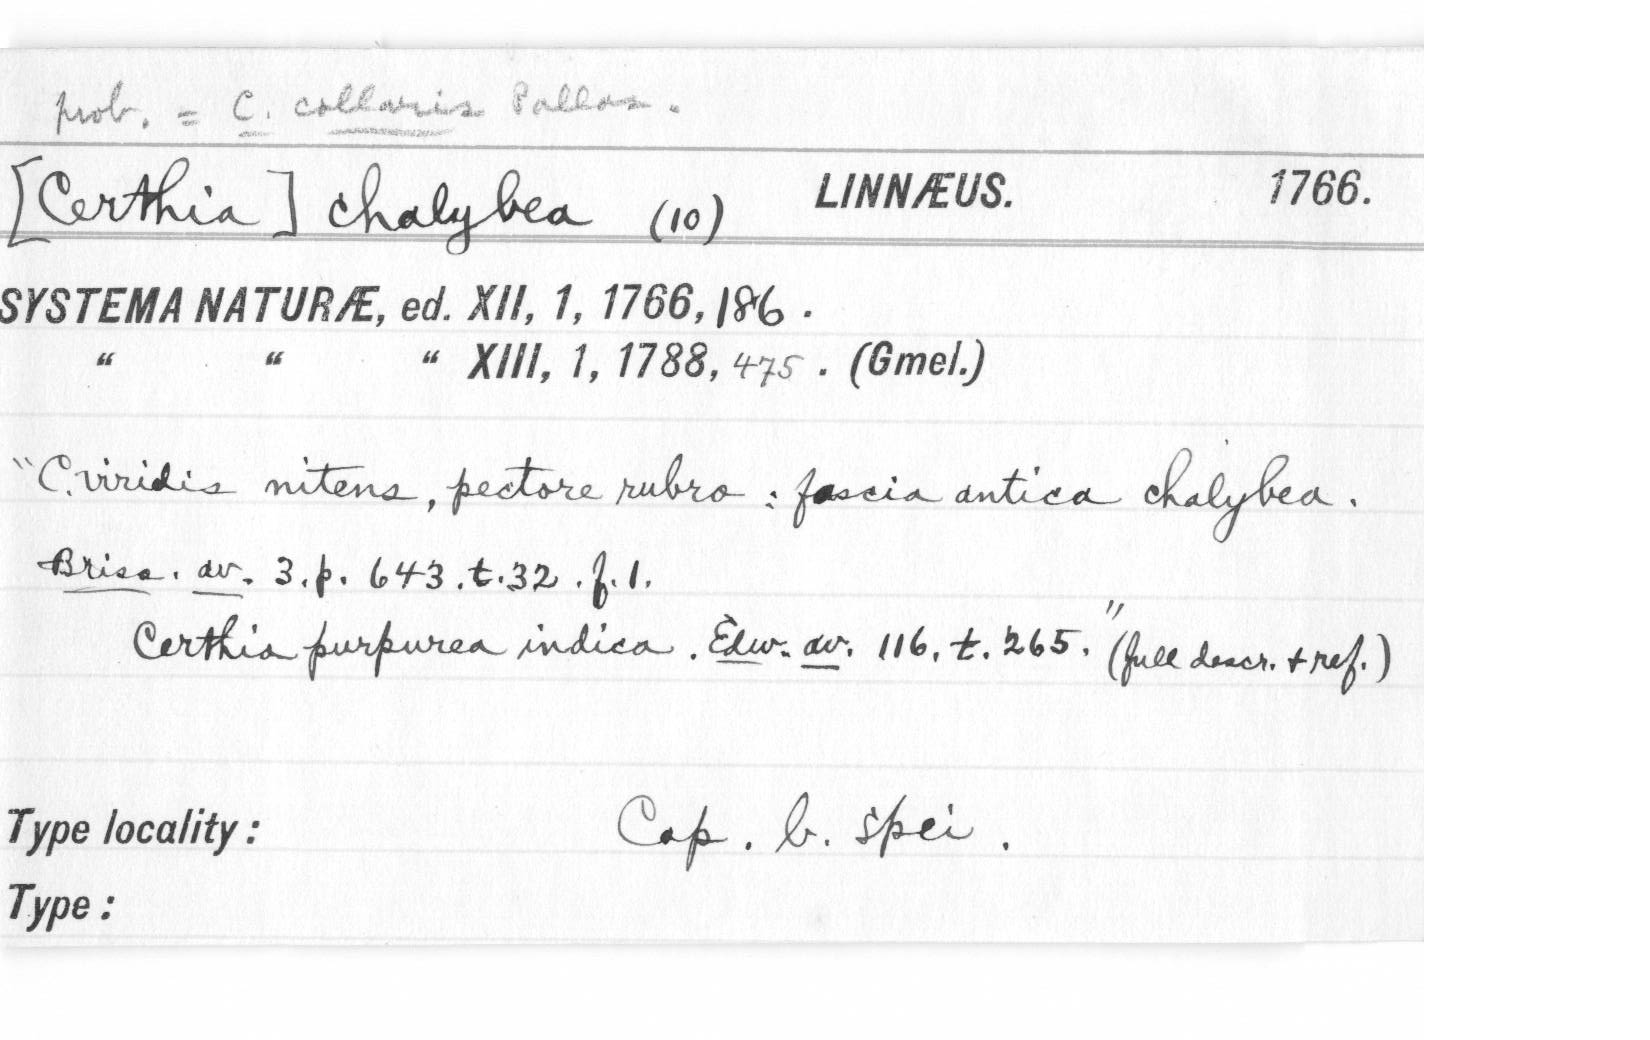 prob. = C. collaris Pallas.
[Certhia] chalybea (10) LINNÆUS. 1766.
SYSTEMA NATURÆ, ed. XII, 1, 1766, 186.
“ “ “ XIII, 1, 1788, 475. (Gmel.)
"C. viridis nitens, pectore rubro : fascia antica chalybea.
Briss. av. 3. p. 643. t. 32. f. 1.
Certhia purpurea indica. Edw. av. 116. t. 265." (full descr. + ref.)
Type locality : Cap. b. spei.
Type :